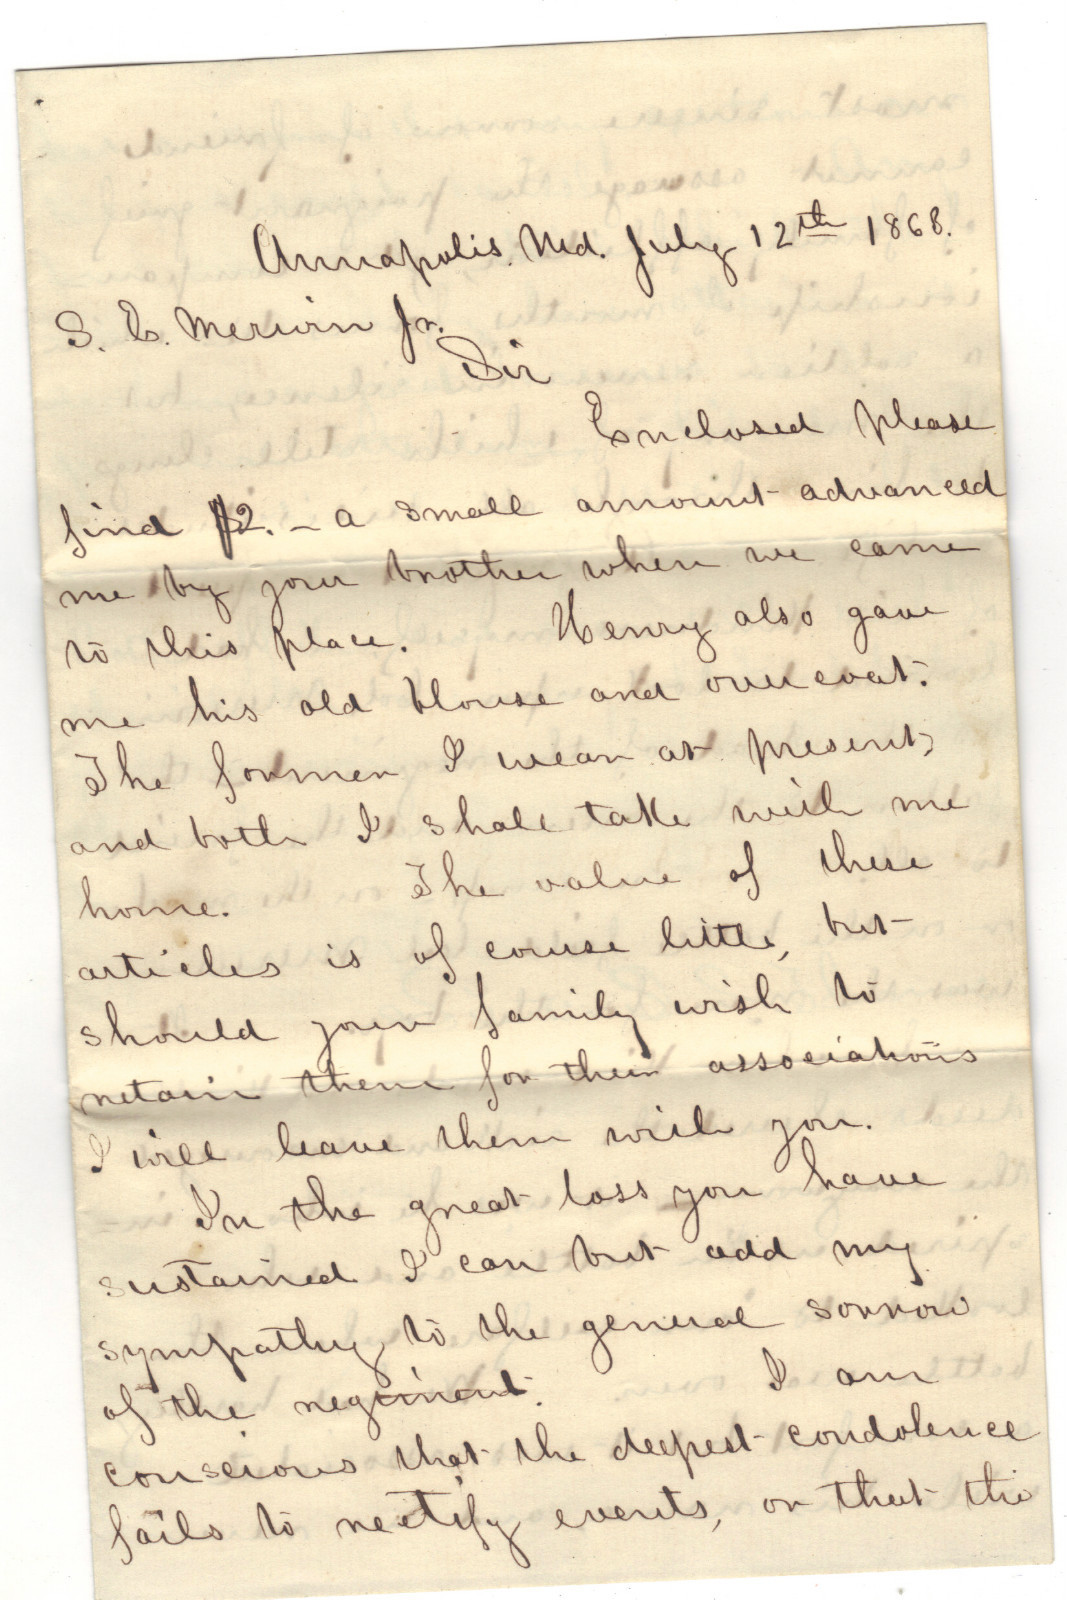 Annapolis, Md. July 12th 1868.
S. E. Merwin Jr.
Sir
Enclosed please
find $2. – a small amount advanced
me by your brother when we came
to this place. Henry also gave
me his old blouse and overcoat.
The former I wear at present,
and both I shall take with me
home. The value of these
articles is of course little, but
should your family wish to
retain them for their associations
I will leave them with you.
In the great loss you have
sustained I can but add my
sympathy to the general sorrow
of the regiment. I am
conscious that the deepest condolence
fails to rectify events, or that the